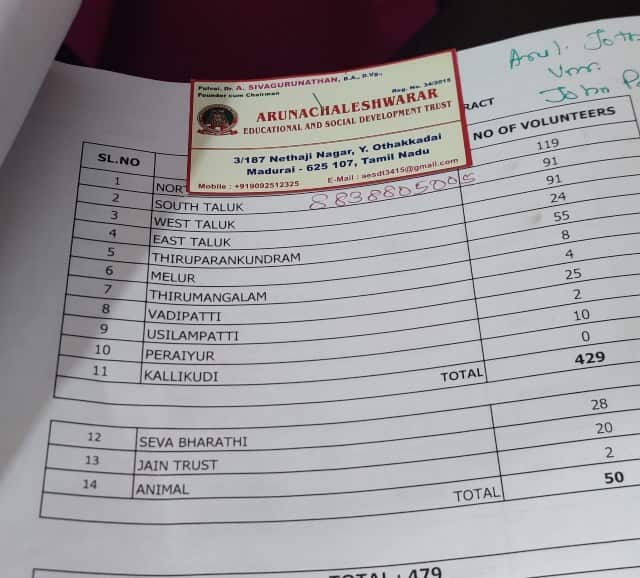 Arul. Jothi
Vm.
John
Dr. A. SIVAGURUNATHAN, B.A., D.Vg.,
Founder cum Chairman
Reg. No. 34/2015
ARUNACHALESHWARAR
EDUCATIONAL AND SOCIAL DEVELOPMENT TRUST
3/187 Nethaji Nagar, Y. Othakkadai
Madurai - 625 107, Tamil Nadu
Mobile : +919092512325 E-Mail : aesdt3415@gmail.com
RACT
SL.NO NO OF VOLUNTEERS
1 NORT 119
2 SOUTH TALUK 91
3 WEST TALUK 91
4 EAST TALUK 24
5 THIRUPARANKUNDRAM 55
6 MELUR 8
7 THIRUMANGALAM 4
8 VADIPATTI 25
9 USILAMPATTI 2
10 PERAIYUR 10
11 KALLIKUDI 0
TOTAL 429
12 SEVA BHARATHI 28
13 JAIN TRUST 20
14 ANIMAL 2
TOTAL 50
TOTAL : 479